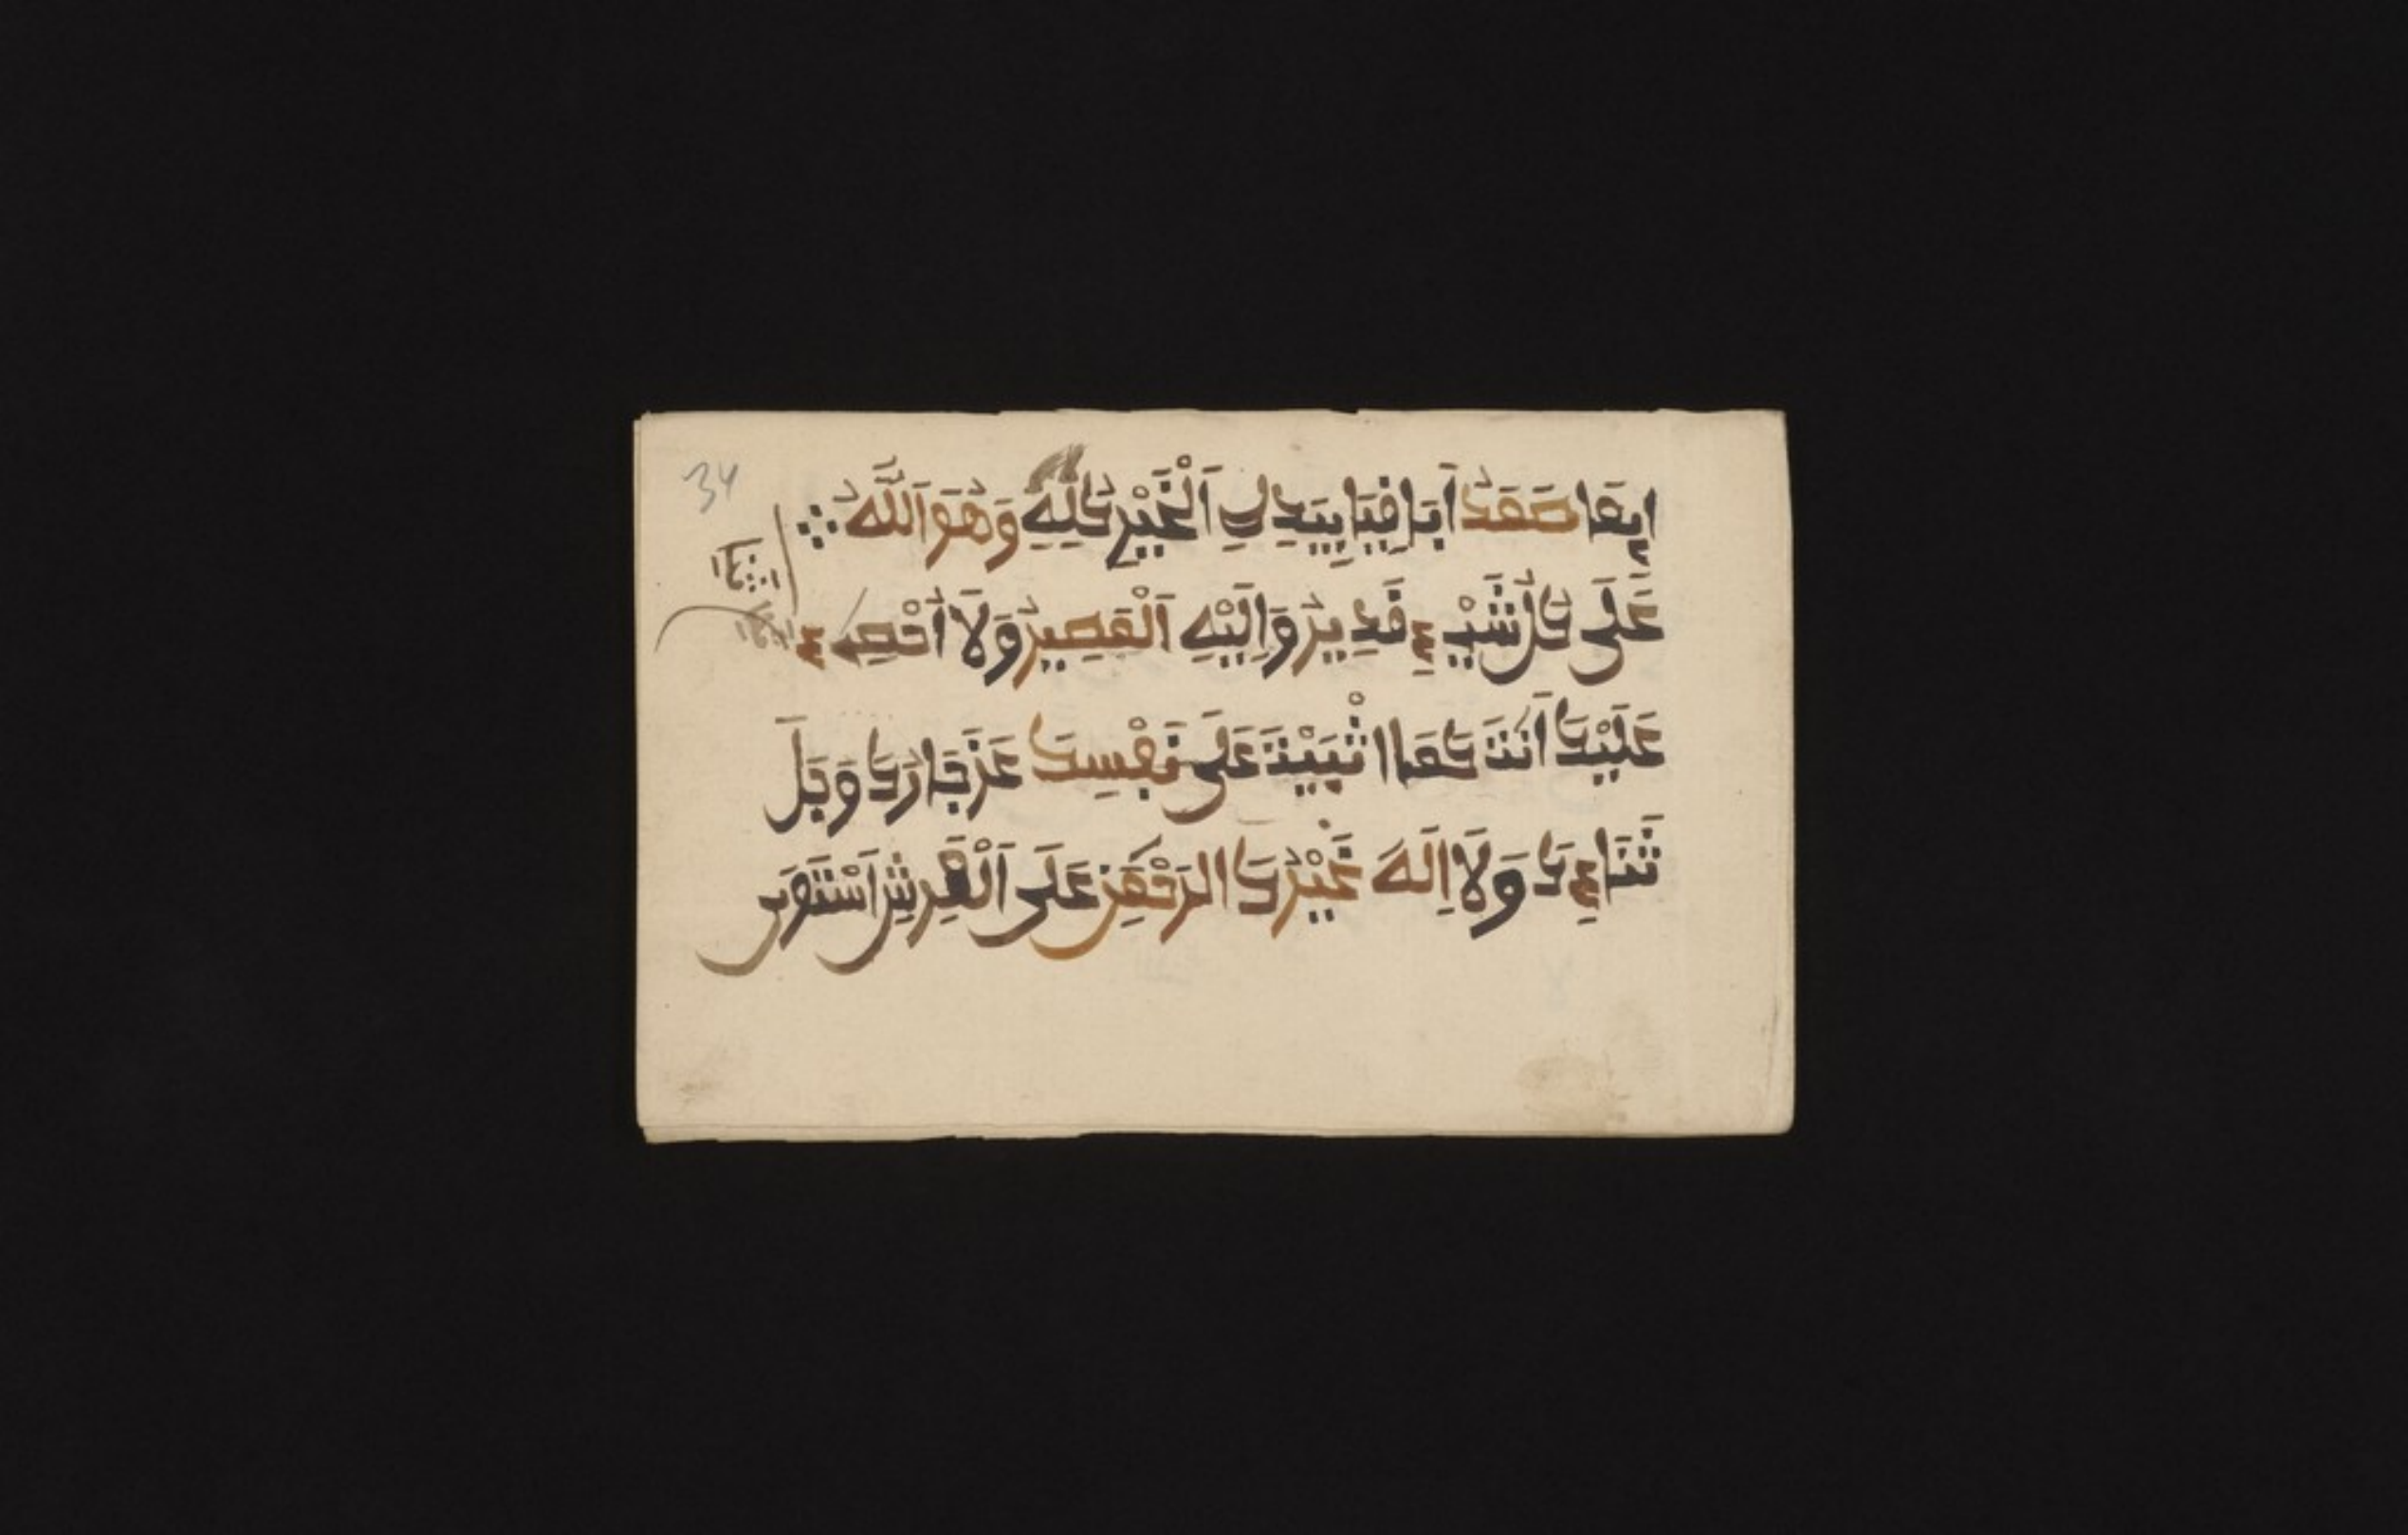 34
إيَّمَا صَمَدُ أَبَا فِيَا بِيَدِكَ اَلْخَيْرِ كُلِّهِ وَهُوَ اَللَّهُ
عَلَى كُلِّ شَيْءٍ قَدِيرُ وَإِلَيْهِ اَلْمَصِيرُ وَلَا أُحْصِي
ثناء
عَلَيْكَ أَنْتَ كَمَا اثْنَيْتَ عَلَى نَفْسِكَ عَزَّ جَارُكَ وَجَلَّ
ثَنَاءِكَ وَلَا إِلَهَ غَيْرُكَ الرَّحْمَنِ عَلَى اَلْعَرْشِ اَسْتَوَى